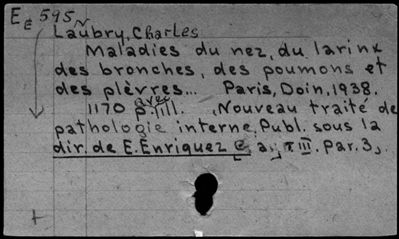 EE 595
Laubry, Charles
Maladies du nez, du larinx
des bronches, des poumons et
des plèvres... Paris, Doin, 1938.
1170 p. avec ill. Nouveau traité de
pathologie interne, Publ. sous la
dir. de E. Enriquez a., T III. Par. 3,